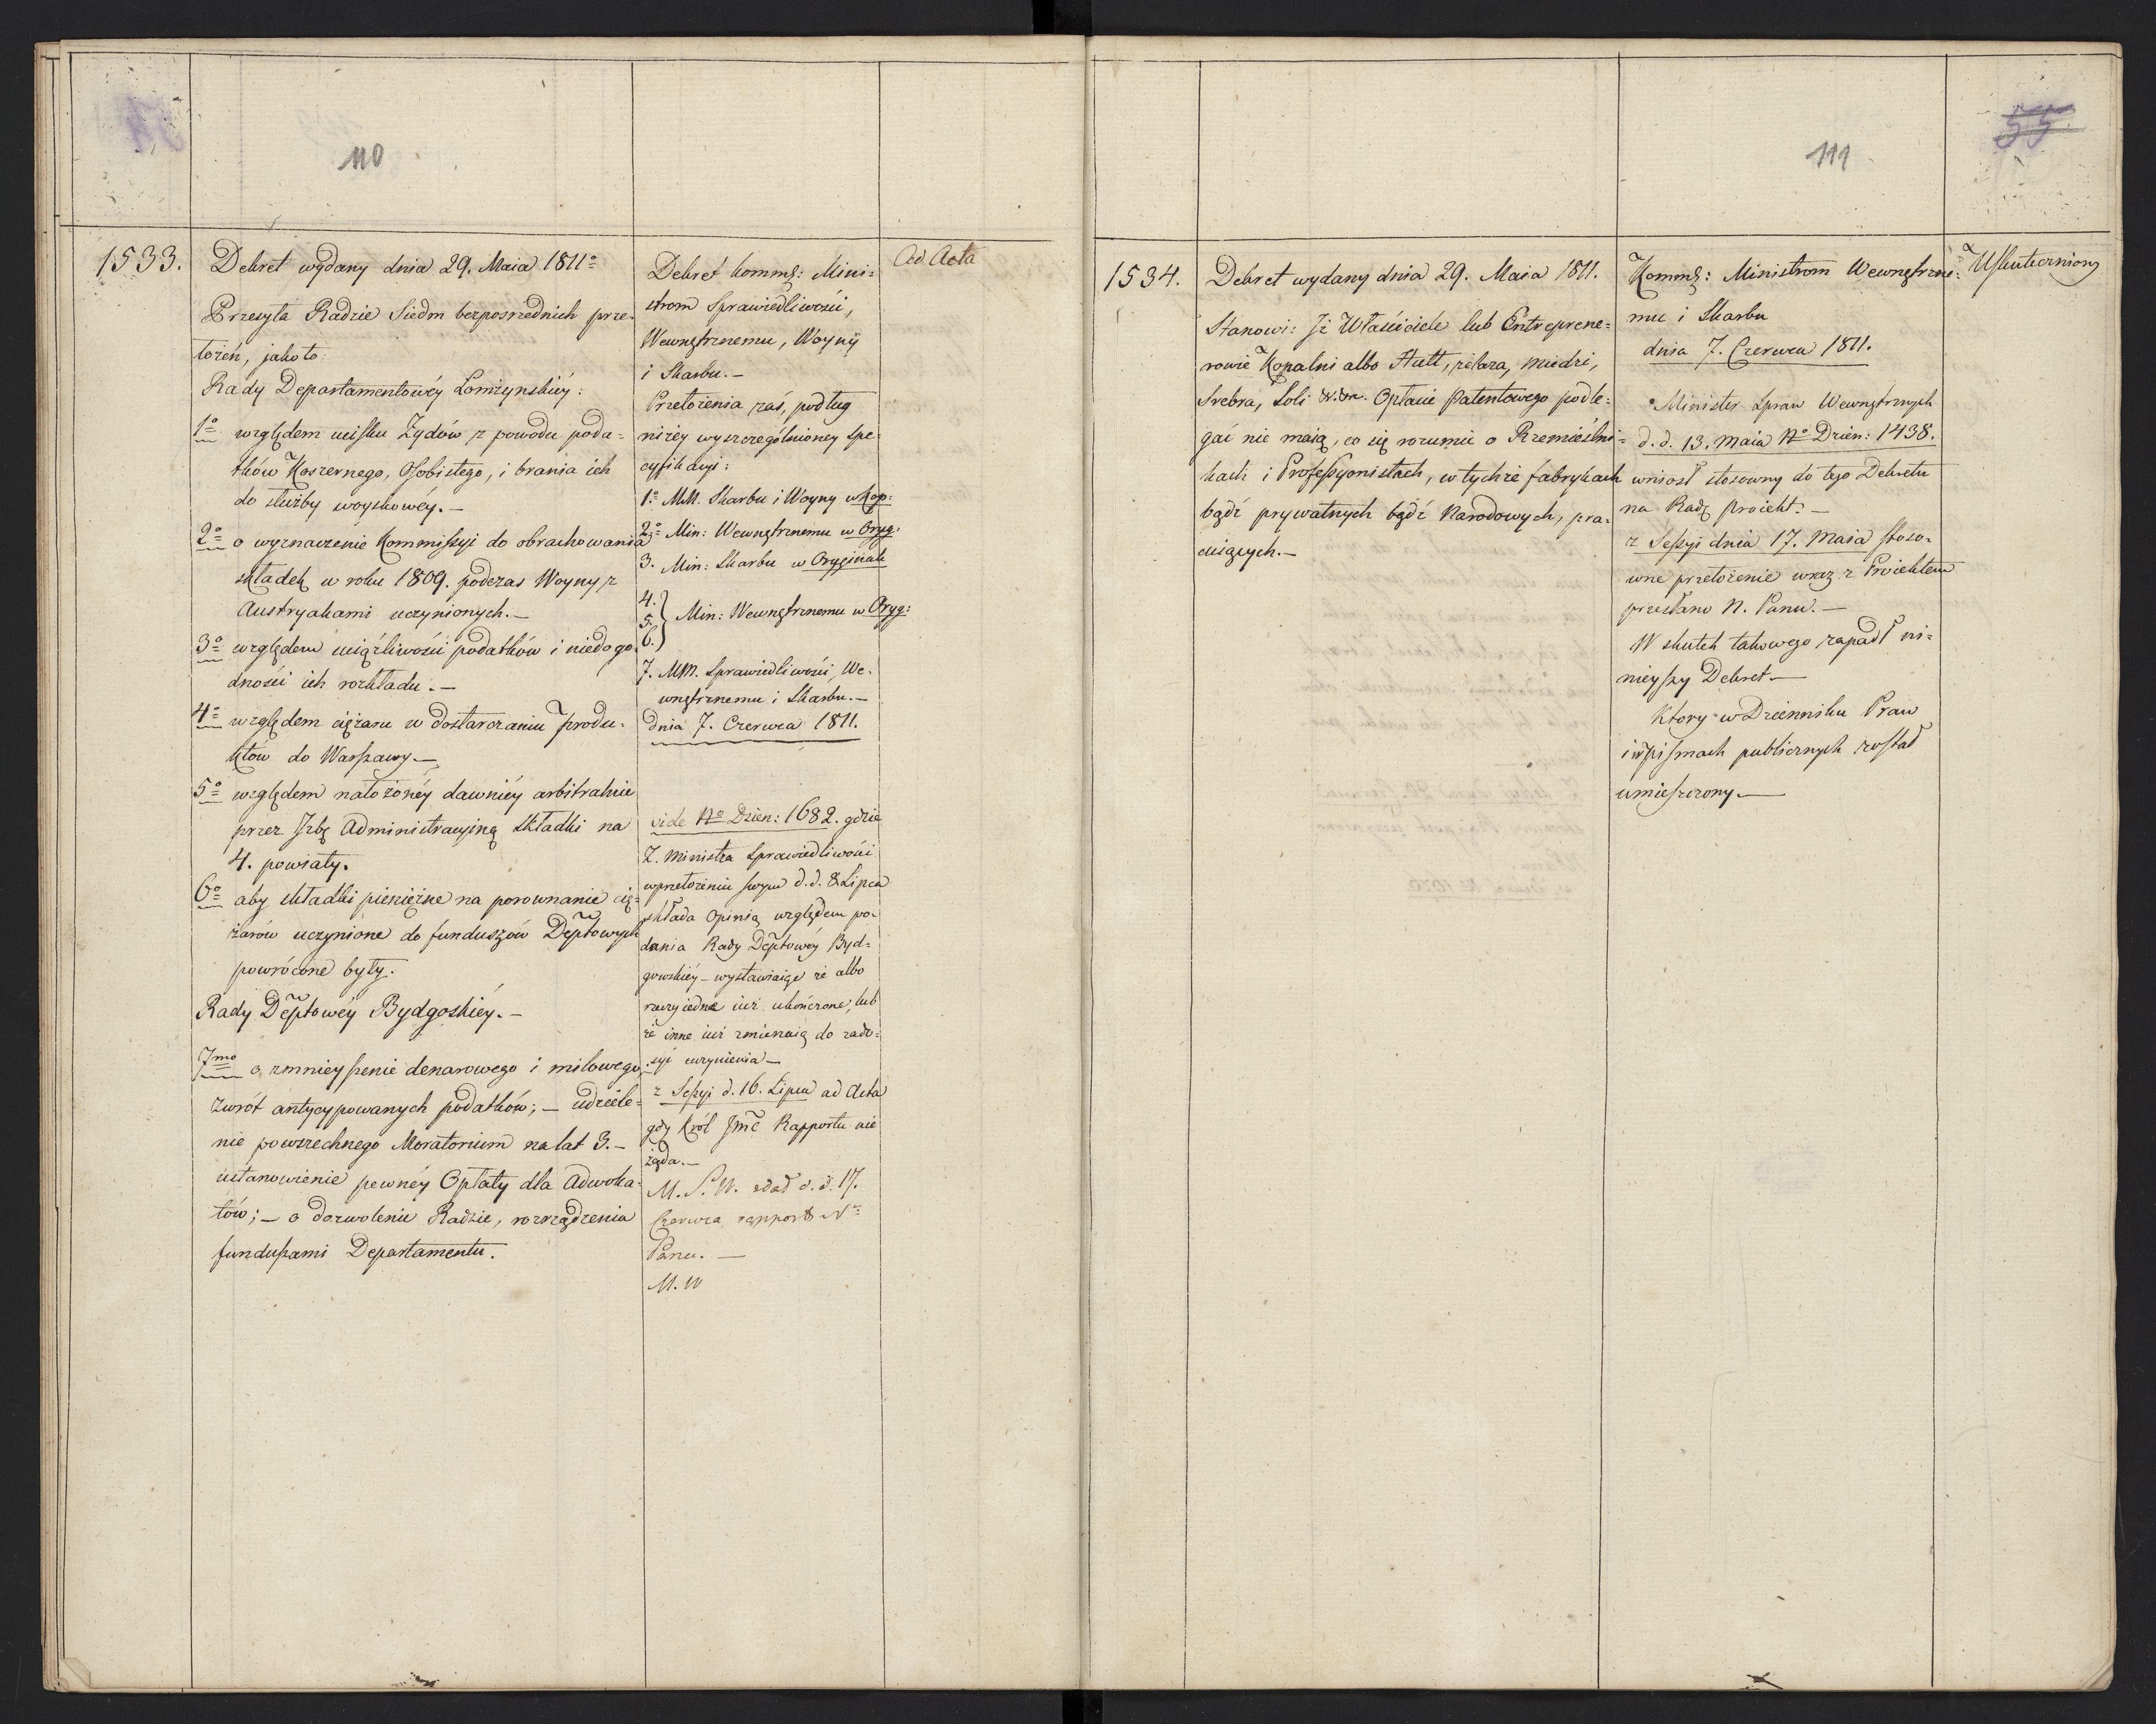 110
1533.
Dekret wydany dnia 29. Maia 1811o
Przesyła Radzie Siedm bezpośrzednich prze-
łożeń, jako to:
Rady Departamentowéy Łomżynskiéy:
1o względem ucisku Żydów z powodu poda=
tków Koszernego, Osobistego, i brania ich
do służby woyskowéy.—
2o o wyznaczenie Kommissyi do obrachowania
składek w roku 1809. podczas Woyny z
Austryakami uczynionych.—
3o względem uciążliwości podatków i niedogo-
dności ich rozkładu.—
4o względem ciężaru w dostarczaniu produ-
któw do Warszawy—
5o względem nałożonéy dawniéy arbitralnie
przez Izbę Administracyiną Składki na
4. powiaty.
6o aby składki pieniężne na porownanie cię=
żarów uczynione do funduszów Deptowych
powrócone były.
Rady Deptowéy Bydgoskiéy.—
7mo o zmnieyszenie denarowego i milowego,
zwrót antycypowanych podatków;— udziele=
nie powszechnego Moratorium na lat 3.—
ustanowienie pewnéy Opłaty dla Adwoka=
tów;— o dozwolenie Radzie, rozrządzenia
funduszami Departamentu.
Dekret kommę: Mini=
strom Sprawiedliwości,
Wewnętrznemu, Woyny
i Skarbu.—
Przełożenia zaś, podług
niżéy wyszczególnioney spe-
cyfikacyi:
1o MM. Skarbu i Woyny w Kop:
2o Min: Wewnętrznemu w Oryg:
3. Min: Skarbu w Oryginale
4.
5. } Min: Wewnętrznemu w Oryg:
6.
7. MM. Sprawiedliwości, We-
wnętrznemu i Skarbu.—
dnia 7. Czerwca 1811.
vide No Dzien: 1682. gdzie
Z. Ministra Sprawiedliwości
w przełożeniu swym d.d. 8 Lipca
składa Opinią względem po-
dania Rady Deptowéy Byd=
gowskiéy— wystawiaiąc że albo
rzeczy iedne iuż ukończone, lub
że inne iuż zmierzaią do zado=
syć uczynienia—
z Sessyi d. 16. Lipca ad Acta
gdy Król Jmć Rapportu nie
żąda.—
M. S. W. zdał d. d. 17.
Czerwca rapport No
Panu.—
M. W
Ad Acta
111
55
1534.
Dekret wydany dnia 29. Maia 1811.
Stanowi: Iż Właściciele lub Entreprene=
rowie Kopalni albo Hutt, żelaza, miedzi,
Srebra, Soli &. Opłacie Patentowego podle=
gać nie maią, co się rozumie o Rzemieślni=
kach i Professyonistach, w tychże fabrykach
bądź prywatnych bądź Narodowych, pra-
cuiących.—
Kommę: Ministrom Wewnętrzne=
mu i Skarbu
dnia 7. Czerwca 1811.
Minister Spraw Wewnętrznych
d. d. 13. Maia No Dzien: 1438.
wniosł stosowny do tego Dekretu
na Radę Proiekt.—
z Sessyi dnia 17. Maia stoso-
wne przełożenie wraz z Proiektem
przesłano N. Panu.—
W skutek takowego zapadł ni=
nieyszy Dekret—
Ktory w Dzienniku Praw
i w pismach publicznych został
umieszczony.—
Uskuteczniony